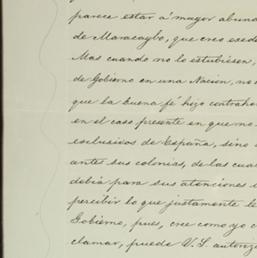 parece estar á mayor abun
de Maracaybo, que creo esced
Mas cuando no lo estubiesen,
de Gobierno en una Nacion, no
que la buena fé hizo contraer
en el caso presente en que no
esclusivos de España, sino
antes sus colonias, de las cua
debia para sus atenciones
percibir lo que justamente le
Gobierno, pues, cree como yo
clamar, puede V.S. autoriz